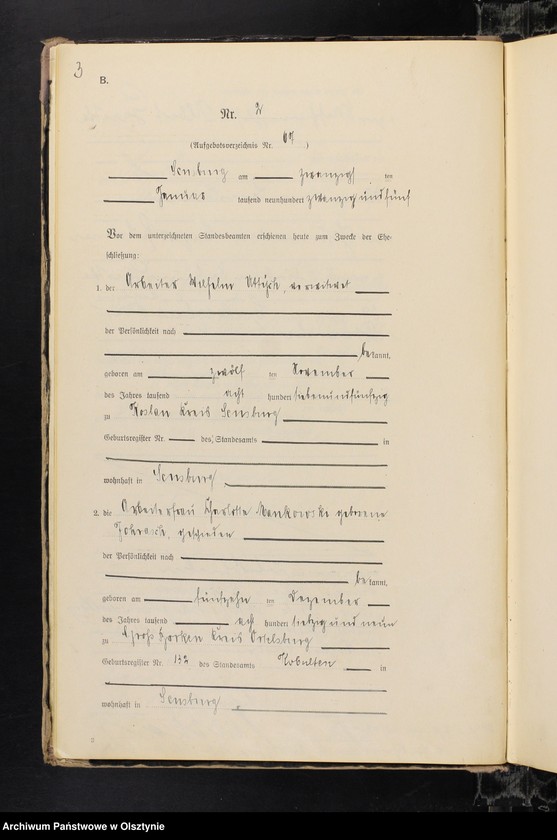 3
B.
Nr. 2
(Aufgebotsverzeichnis Nr. 67)
Sensburg am zwanzigs ten
Januar tausend neunhundert zwanzig und fünf
Vor dem unterzeichneten Standesbeamten erschienen heute zum Zwecke der Ehe-
schließung:
1. der Arbeiter Wilhelm, verwitwet
der Persönlichkeit nach
be kannt,
geboren am zwölf ten November
des Jahres tausend acht hundert siebenundfünfzig
zu Koslau Kreis Sensburg
Geburtsregister Nr. des Standesamts in
wohnhaft in Sensburg
2. die Arbeiterfrau Charlotte Mankowski geborene
geschieden
der Persönlichkeit nach
be kannt,
geboren am fünfzehn ten Dezember
des Jahres tausend acht hundert siebzig und neun
zu Groß Kreis Ortelsburg
Geburtsregister Nr. 132 des Standesamts Kobulten in
wohnhaft in Sensburg
Archiwum Państwowe w Olsztynie